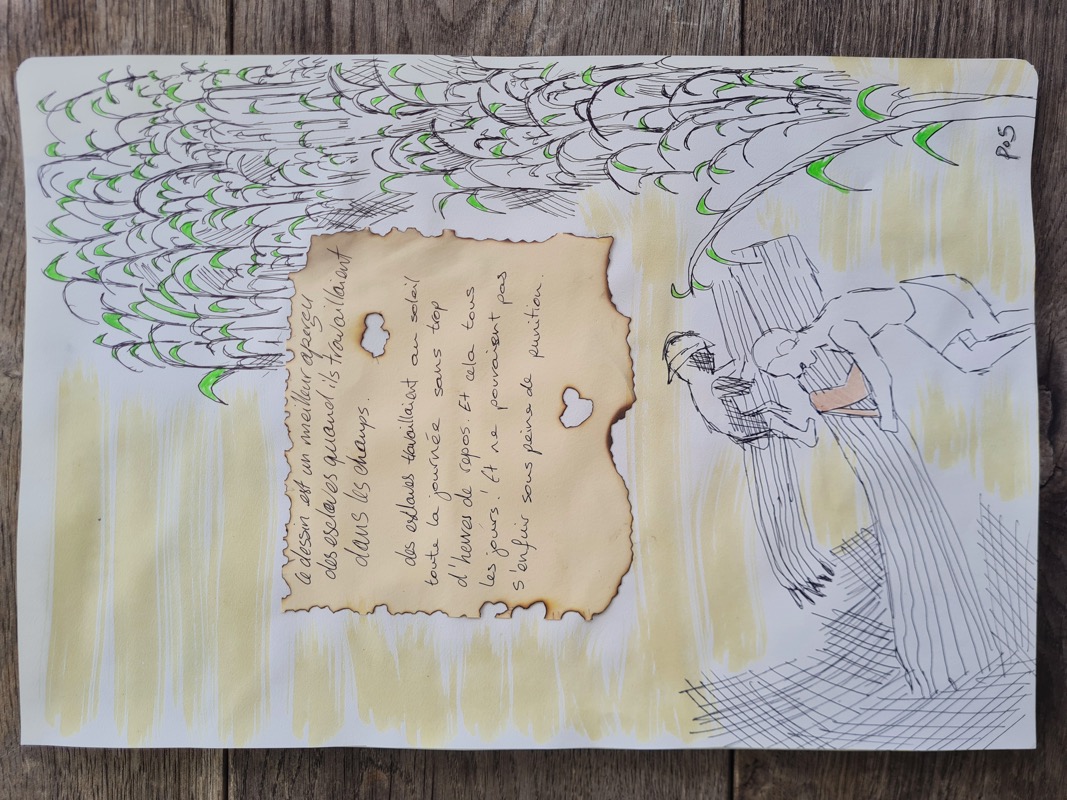 Ce dessin est un meilleur aperçu
des esclaves quand ils travaillaient
dans les champs.
des esclaves travaillaient au soleil
toute la journée sans trop
d'heures de repos. Et cela tous
les jours! Et ne pouvaient pas
s'enfuir sous peine de punition.
P.5